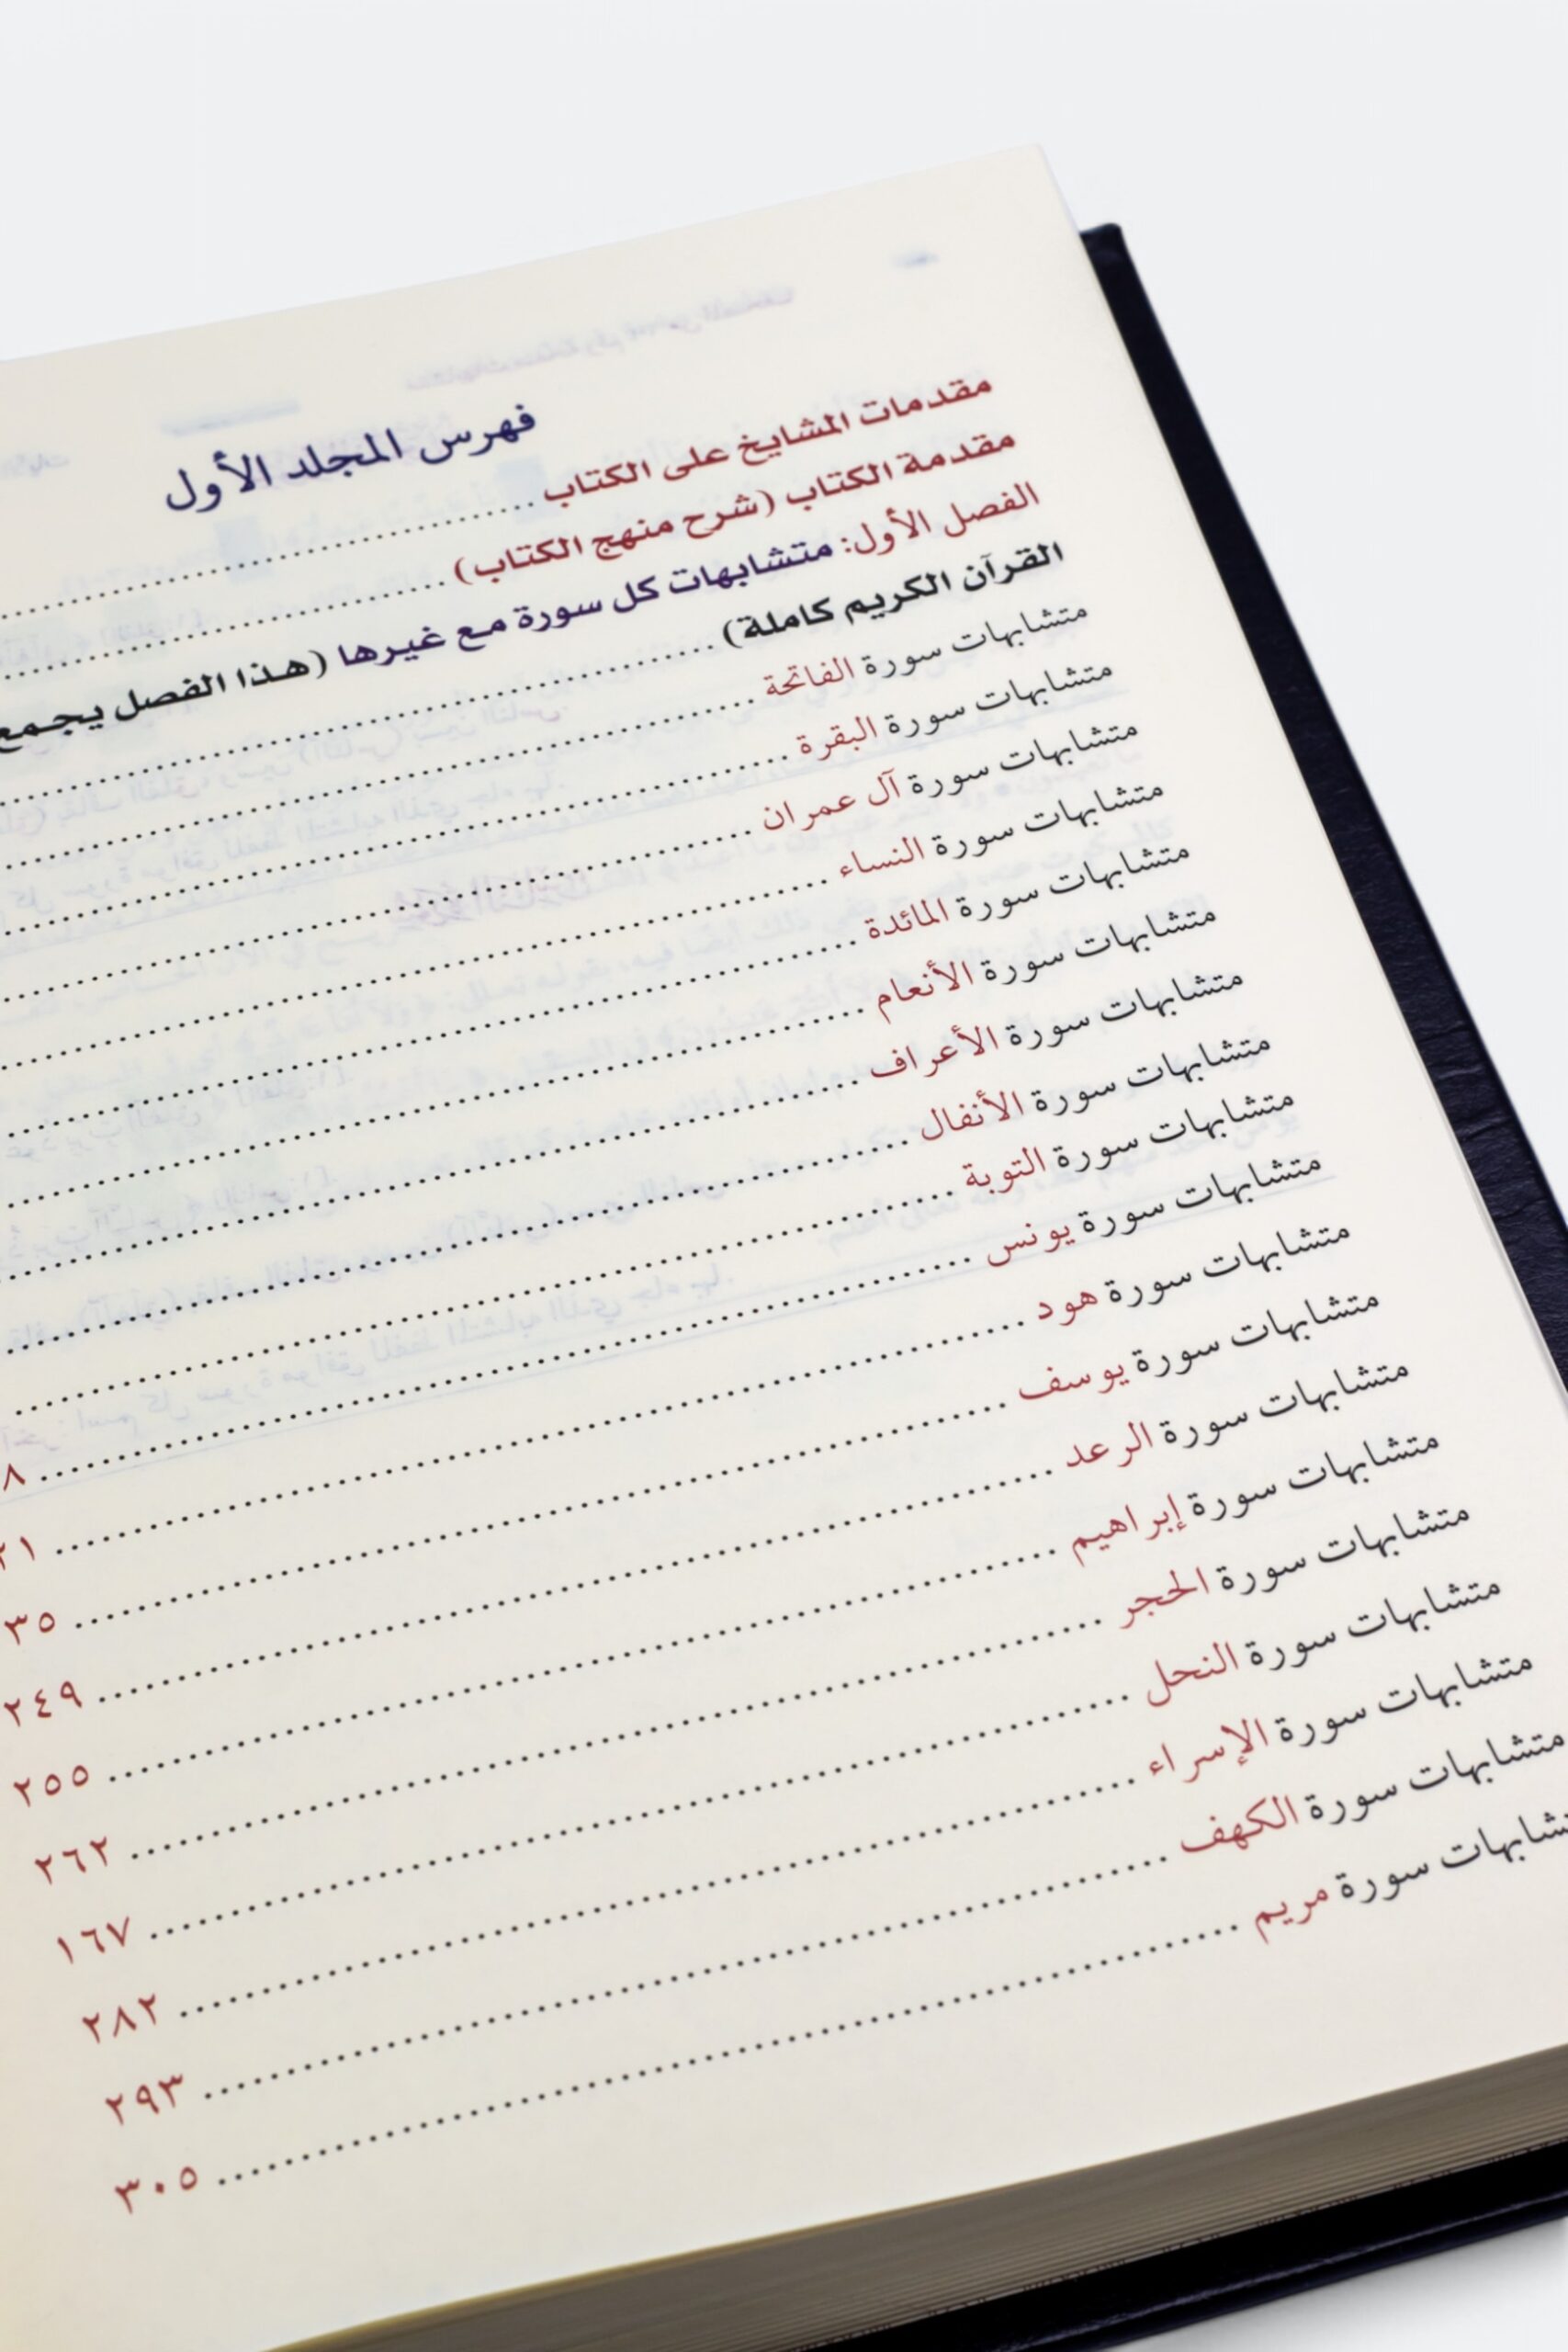 فهرس المجلد الأول
مقدمات المشايخ على الكتاب
مقدمة الكتاب (شرح منهج الكتاب)
الفصل الأول: متشابهات كل سورة مع غيرها (هذا الفصل يجمع
القرآن الكريم كاملة)
متشابهات سورة الفاتحة
متشابهات سورة البقرة
متشابهات سورة آل عمران
متشابهات سورة النساء
متشابهات سورة المائدة
متشابهات سورة الأنعام
متشابهات سورة الأعراف
متشابهات سورة الأنفال
متشابهات سورة التوبة
متشابهات سورة يونس ٨
متشابهات سورة هود ٢١
متشابهات سورة يوسف ٣٥
متشابهات سورة الرعد ٢٤٩
متشابهات سورة إبراهيم ٢٥٥
متشابهات سورة الحجر ٢٦٢
متشابهات سورة النحل ١٦٧
متشابهات سورة الإسراء ٢٨٢
متشابهات سورة الكهف ٢٩٣
سورة مريم ٣٠٥